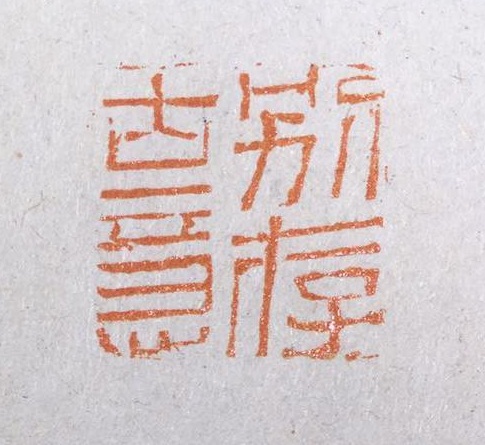 別存
古意